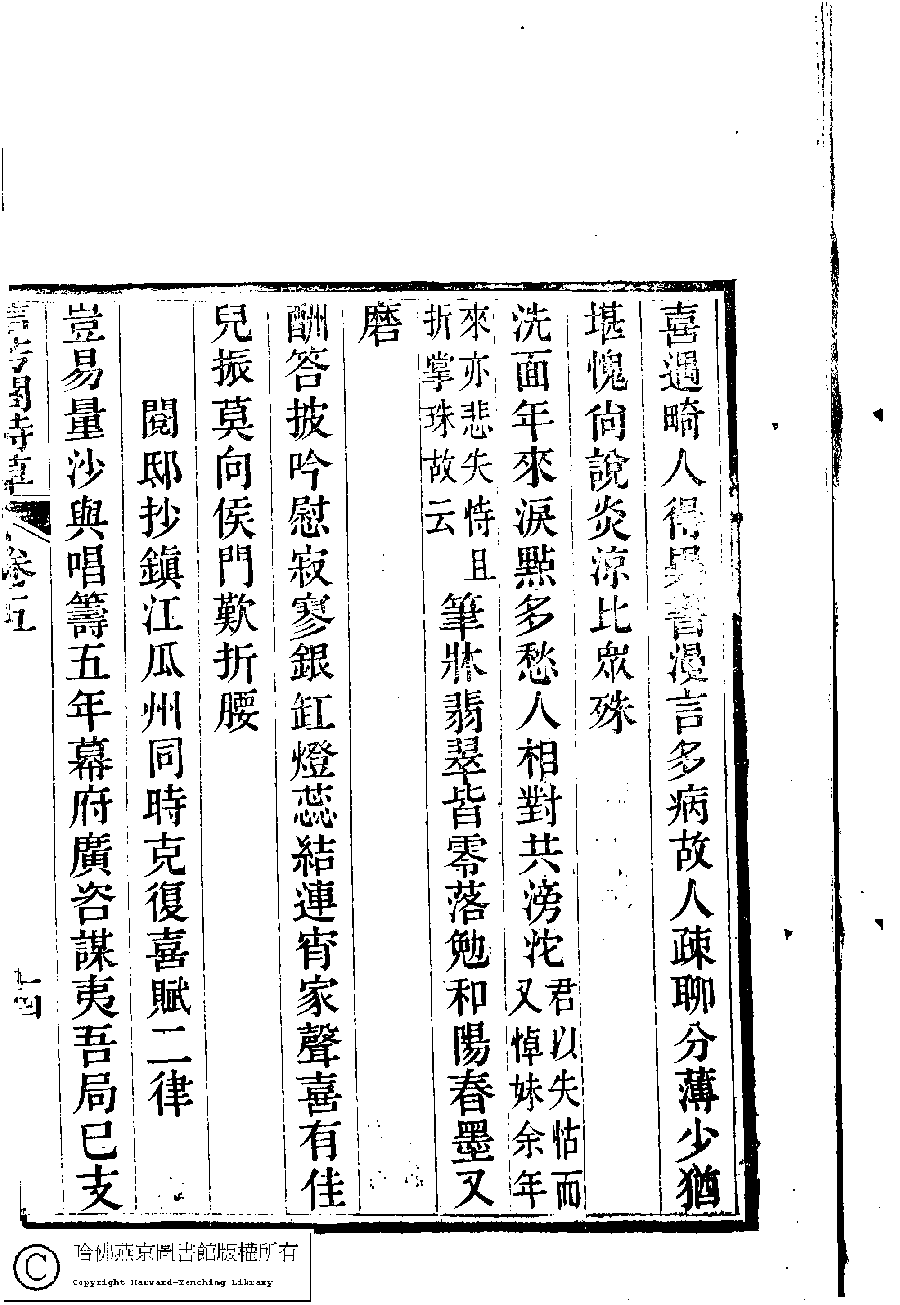 喜遇畸人得異書漫言多病故人疎聊分薄少猶
堪愧尙說炎涼比衆殊
洗面年來淚點多愁人相對共滂沱君以失怙而又悼妹余年
來亦悲失恃且折掌珠故云筆牀翡翠皆零落勉和陽春墨又
磨
酬答披吟慰寂寥銀缸燈蕊結連宵家聲喜有佳
兒振莫向侯門歎折腰
閱邸抄鎭江瓜州同時克復喜賦二律
豈易量沙與唱籌五年幕府廣咨謀夷吾局已支
卷五
十四
哈佛燕京圖書館版權所有
Copyright Harvard-Yenching Library